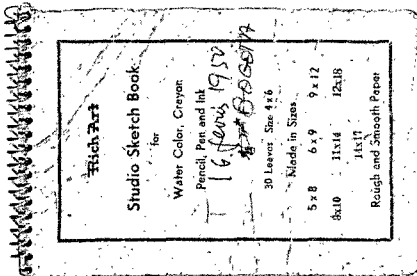 Rich Art
Studio Sketch Book
for
Water Color, Crayon
Pencil, Pen and Ink
16 1950
BOGOTA
30 Leaves Size 4x6
Made in Sizes
5x8 6x9 9x12
8x10 11x14 12x18
14x17
Rough and Smooth Paper